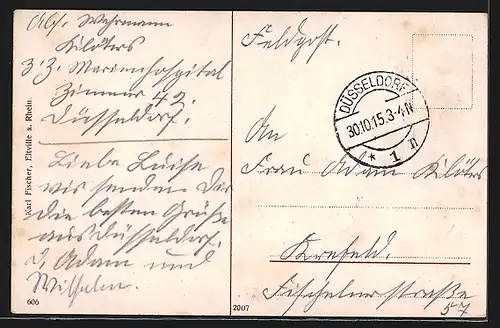 Abs. Wehrmann
Kilöters
z. Z. Marienhospital
Zimmer 42.
Düsseldorf.
Liebe Luise
wir senden Dir
die besten Grüße
aus Düsseldorf.
Adam und
Wilhelm.
606
Karl Fischer, Eltville a. Rhein.
2007
Feldpost.
DÜSSELDORF
30.10.15.3-4N
* 1 n
An
Frau Adam Kilöters
Krefeld.
Fischelnerstraße
57